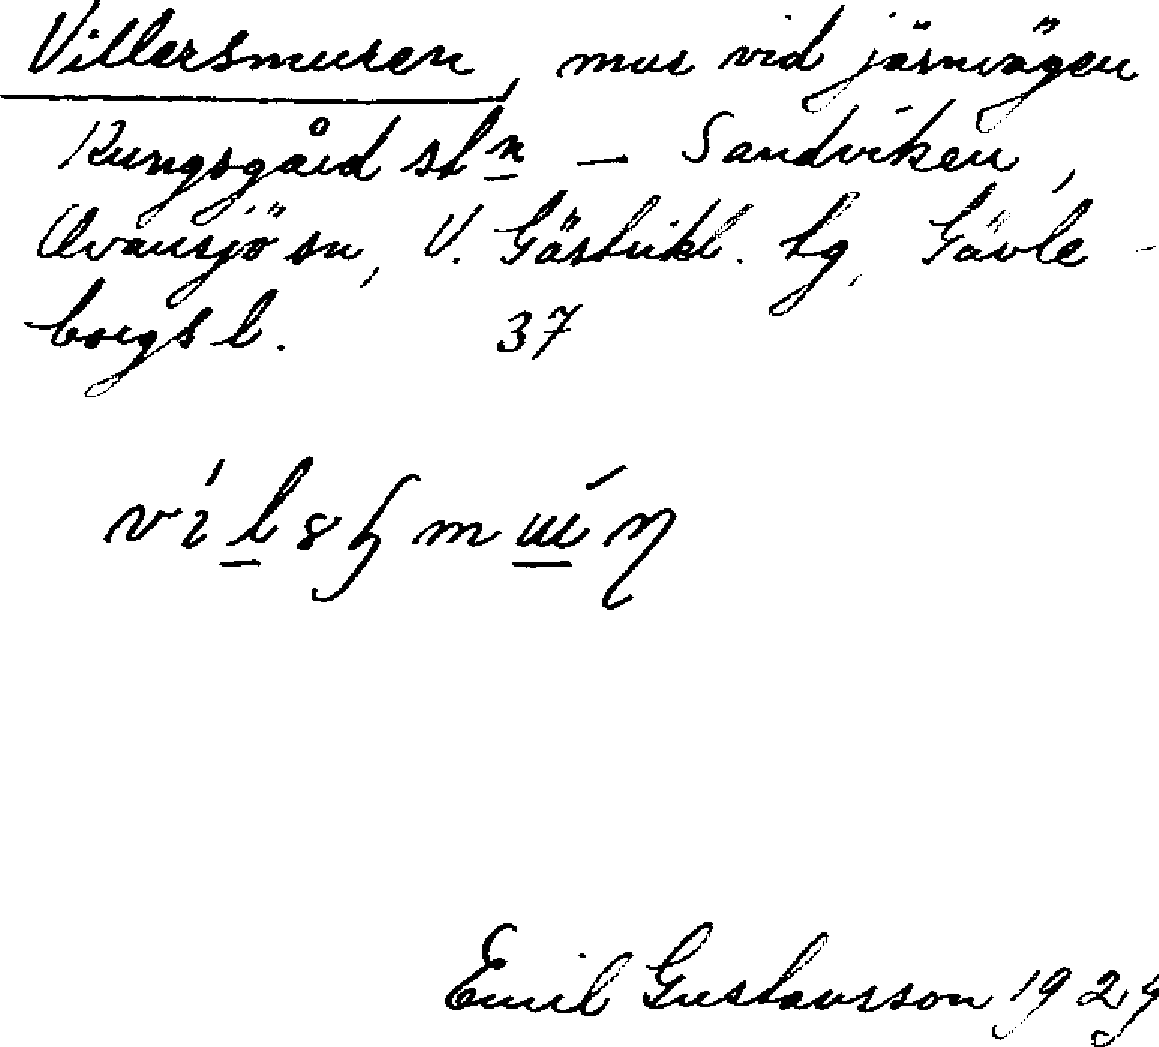 Villersmuren, mur vid järnvägen
Kungsgård stn – Sandviken,
Ovansjö sn, V. Gästrikl. tg, Gävle-
borgs l. 37
Emil Gustavsson 1929